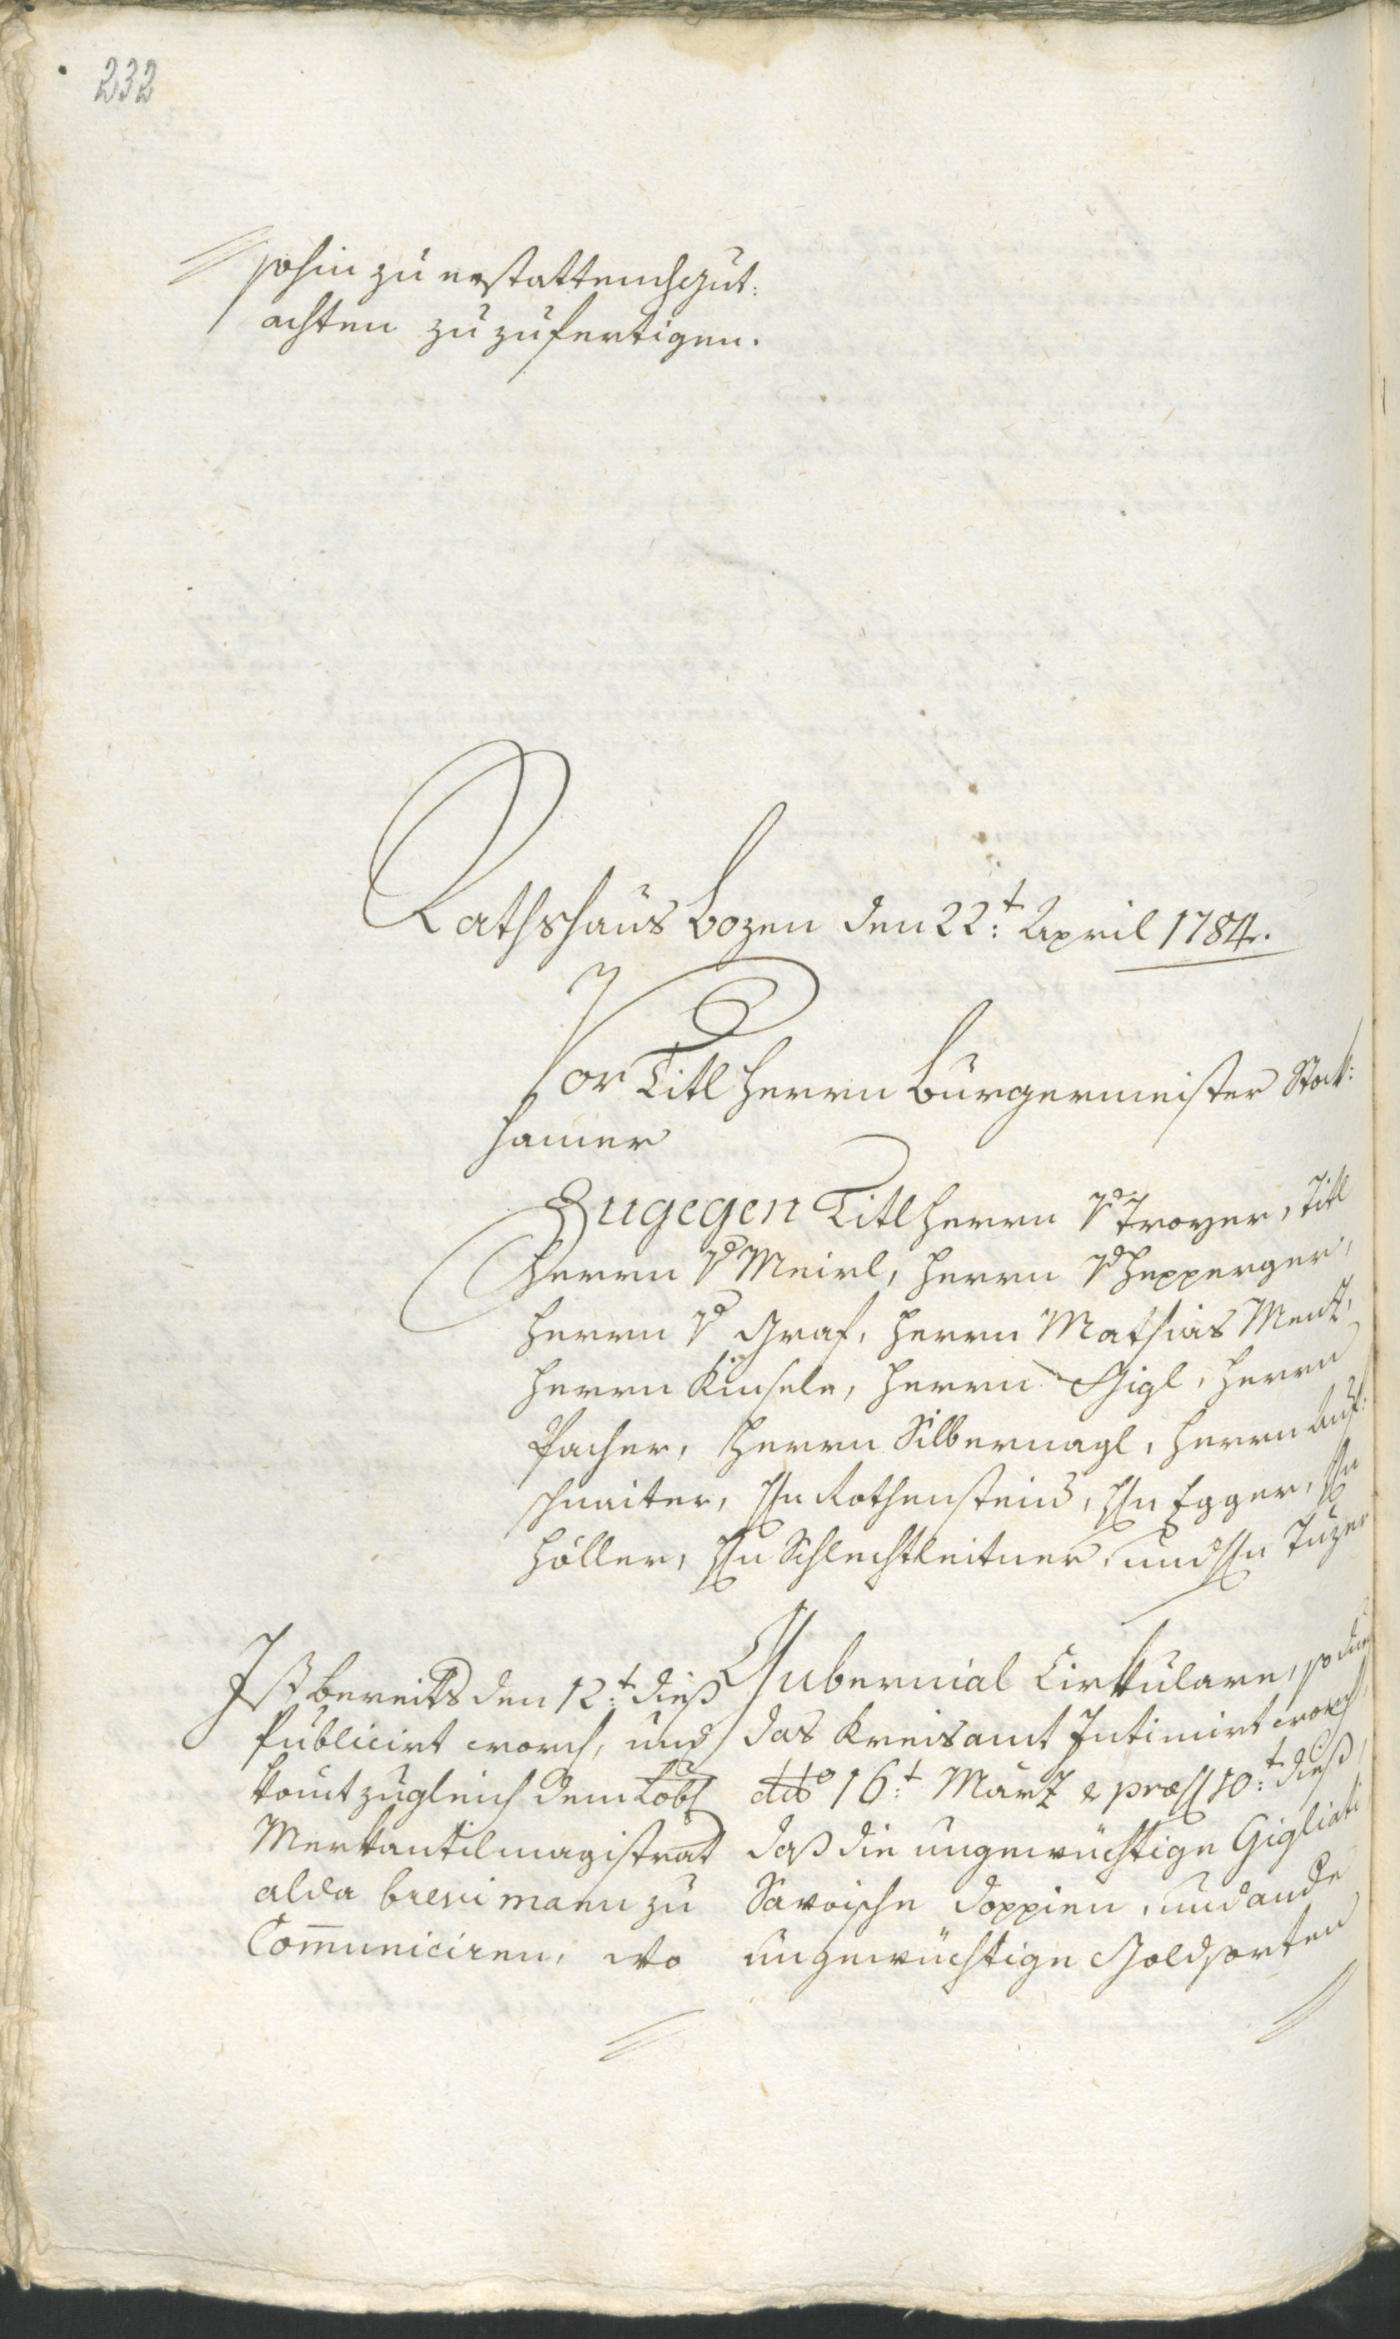 232
sohin zu erstattend Gut:
achten zuzufertigen.
Rathshaus Bozen den 22:t April 1784.
Vor Titl Herrn Bürgermeister Stock:
hamer
Zugegen Titl Herrn v Troyer, Titl
Herrn v Meirl, Herrn v Hepperger,
Herrn v Graf, Herrn Mathias Menz,
Herrn Kinsele, Herrn Gigl, Herrn
Pacher, Herrn Silbernagl, Herrn Auf:
schnaiter, Hn Rothenstein, Hn Egger, Hn
Höller, Hn Schlechtleitner, und Hn Tuzer
Ist bereits den 12:t dieß
Publicirt word, und
komt zugleich dem Löbl
Merkantilmagistrat
alda brevi manu zu
Com̄uniciren, wo
Gubernial Cirkulare, so durch
das Kreisamt Intimirt word,
ddo 16:t März & præs 10:t dieß,
daß die ungewüchtige Gigliati
Savoische Doppien, und ande
ungewüchtige Goldsorten